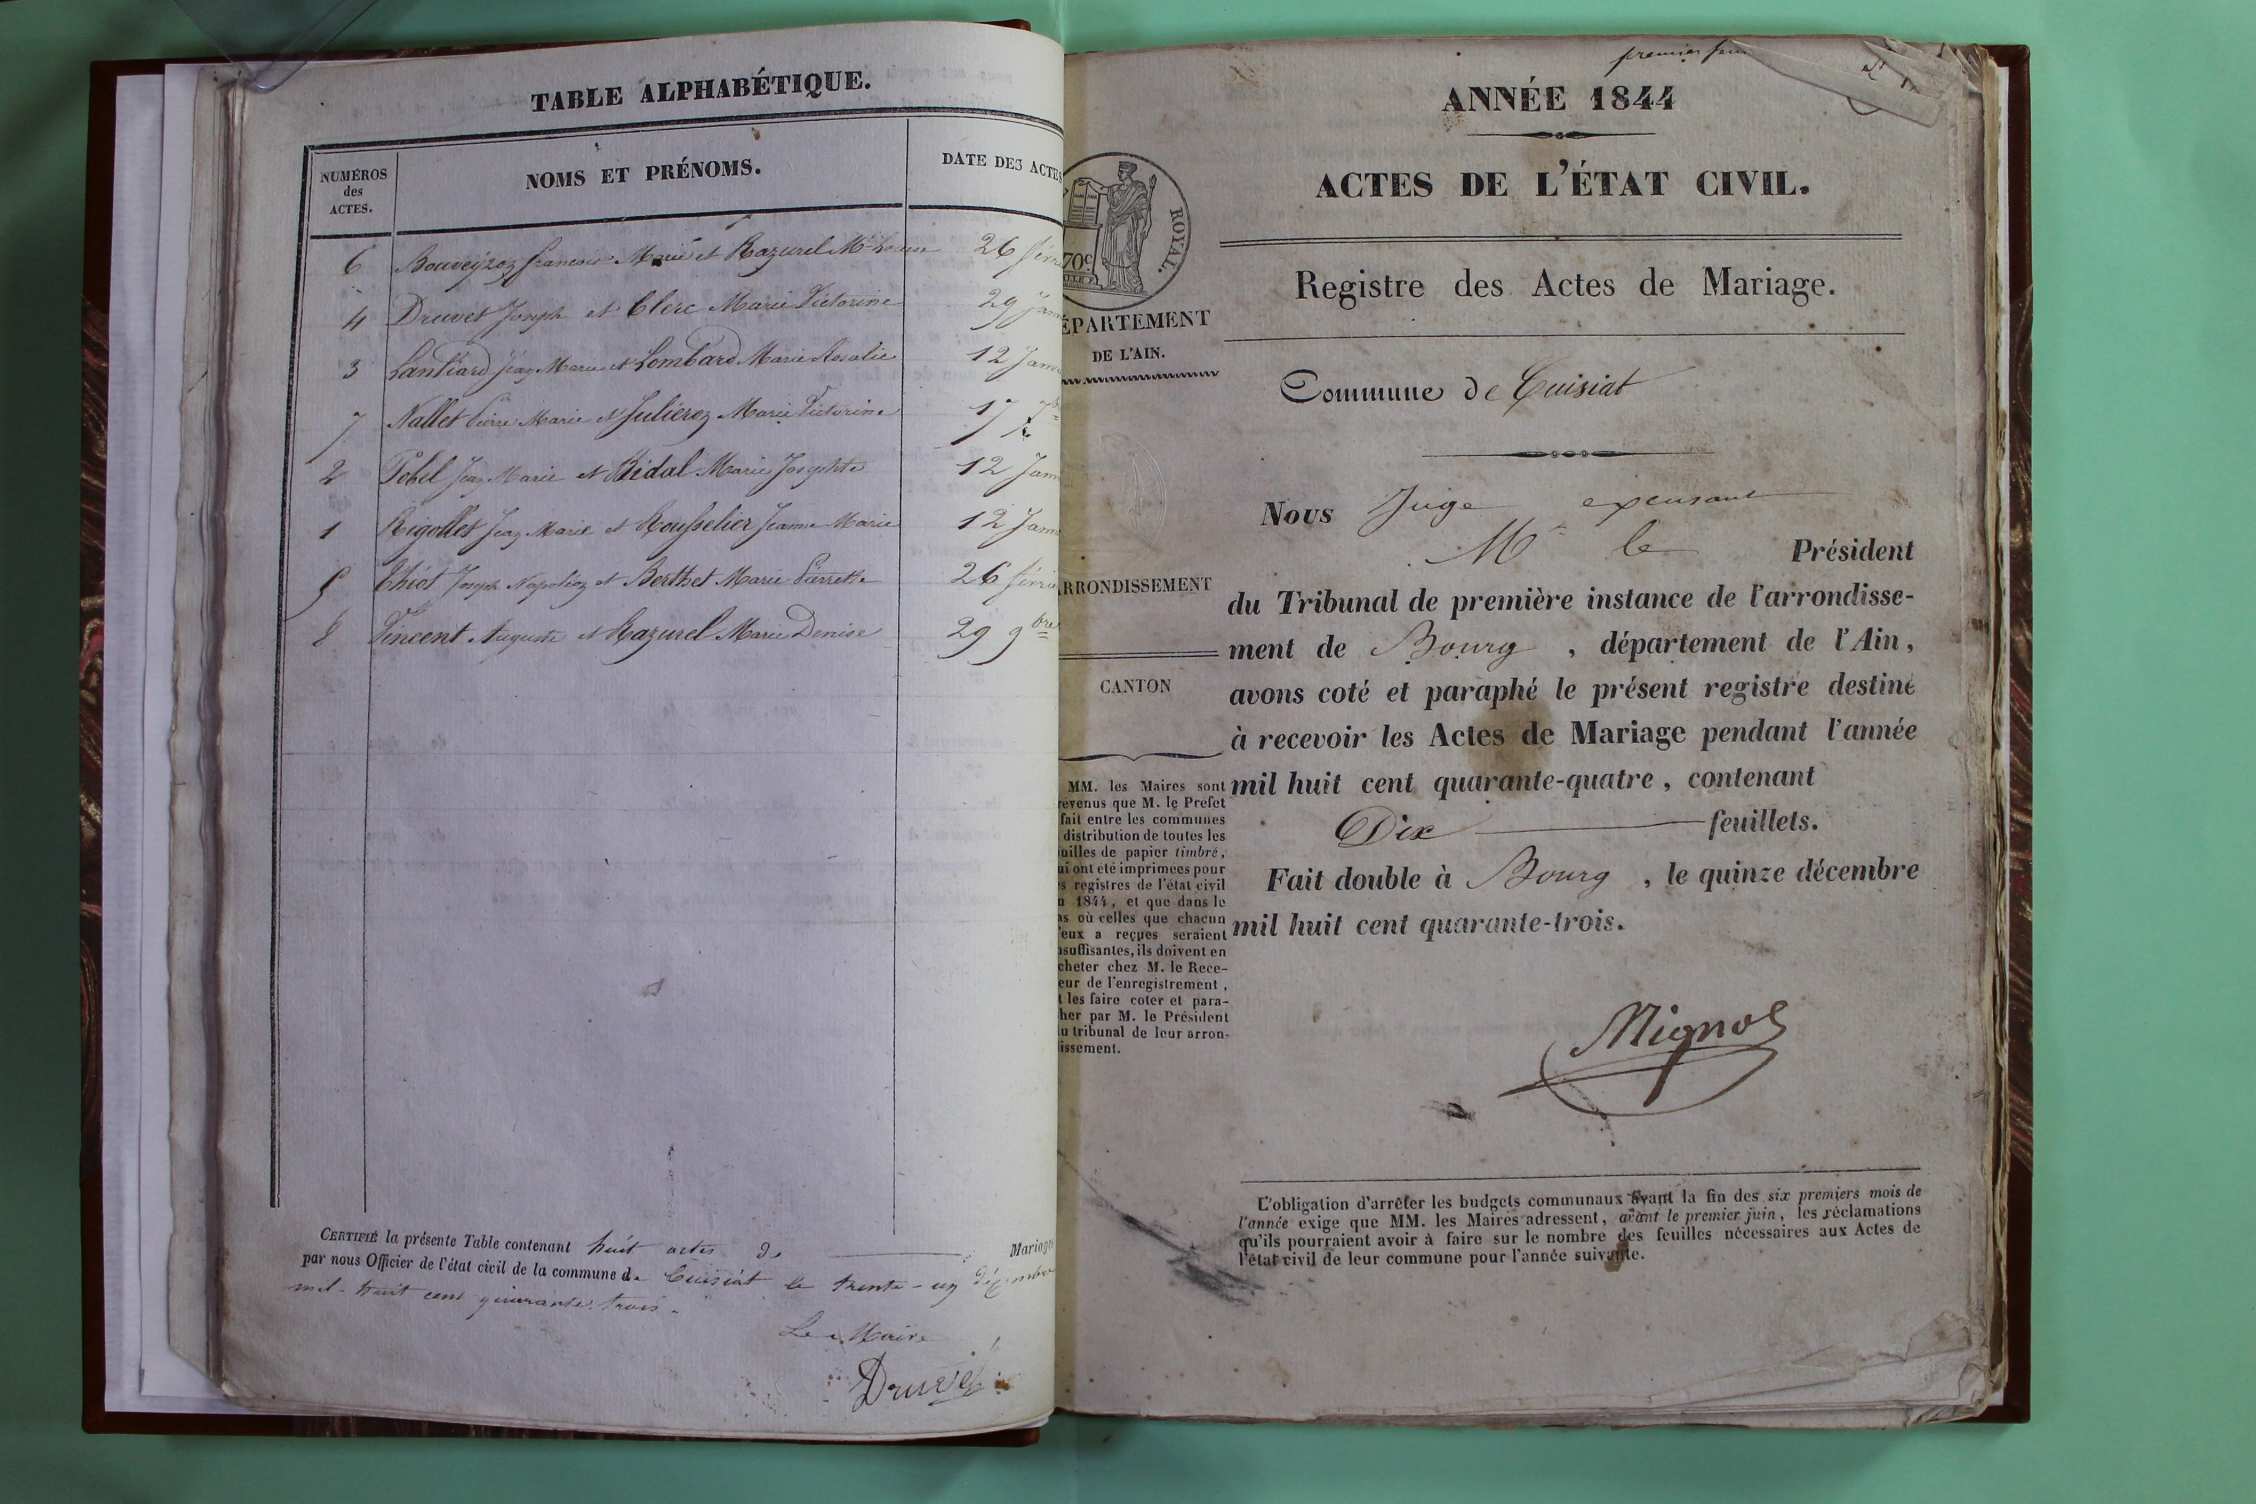 TABLE ALPHABÉTIQUE.
NUMÉROS
des
ACTES.
NOMS ET PRÉNOMS.
DATE DES ACTES
6 Bouveyroz françois Marie et Razurel Mie Louise 26 févri
4 Druvet Joseph et Clerc Marie Victorine 29 Janv
3 Lantiard Jean Marie et Lombard Marie Rosalie 12 Janvi
7 Nallet Pierre Marie et Julieroz Marie Victorine 17 7bre
2 Pobel Jean Marie et Bidal Marie Josephte 12 Janv
1 Rigollet Jean Marie et Rousselier Jeanne Marie 12 Janv
5 Thiet Joseph Napoléon et Berthet Marie Pierrette 26 févrie
8 Vincent Auguste et Razurel Marie Denise 29 9bre
CERTIFIÉ la présente Table contenant huit actes de Mariages
par nous Officier de l'état civil de la commune de Cuisiat le trente-un décembre
mil-huit cent quarante-trois.
Le Maire
Druvet
premier feui
ANNÉE 1844
ACTES DE L'ÉTAT CIVIL.
Registre des Actes de Mariage.
ROYAL.
70c
ÉPARTEMENT
DE L'AIN.
Commune de Cuisiat
Nous Juge excusant
Mr le Président
du Tribunal de première instance de l'arrondisse-
ment de Bourg, département de l'Ain,
avons coté et paraphé le présent registre destiné
à recevoir les Actes de Mariage pendant l'année
mil huit cent quarante-quatre, contenant
Dix feuillets.
Fait double à Bourg, le quinze décembre
mil huit cent quarante-trois.
Mignot
ARRONDISSEMENT
CANTON
MM. les Maires sont
révenus que M. le Préfet
fait entre les communes
distribution de toutes les
uilles de papier timbré,
ui ont été imprimées pour
s registres de l'état civil
n 1844, et que dans le
as où celles que chacun
'eux a reçues seraient
nsuffisantes, ils doivent en
cheter chez M. le Rece-
eur de l'enregistrement,
t les faire coter et para-
her par M. le Président
u tribunal de leur arron-
issement.
L'obligation d'arrêter les budgets communaux avant la fin des six premiers mois de
l'année exige que MM. les Maires adressent, avant le premier juin, les réclamations
qu'ils pourraient avoir à faire sur le nombre des feuilles nécessaires aux Actes de
l'état civil de leur commune pour l'année suivante.